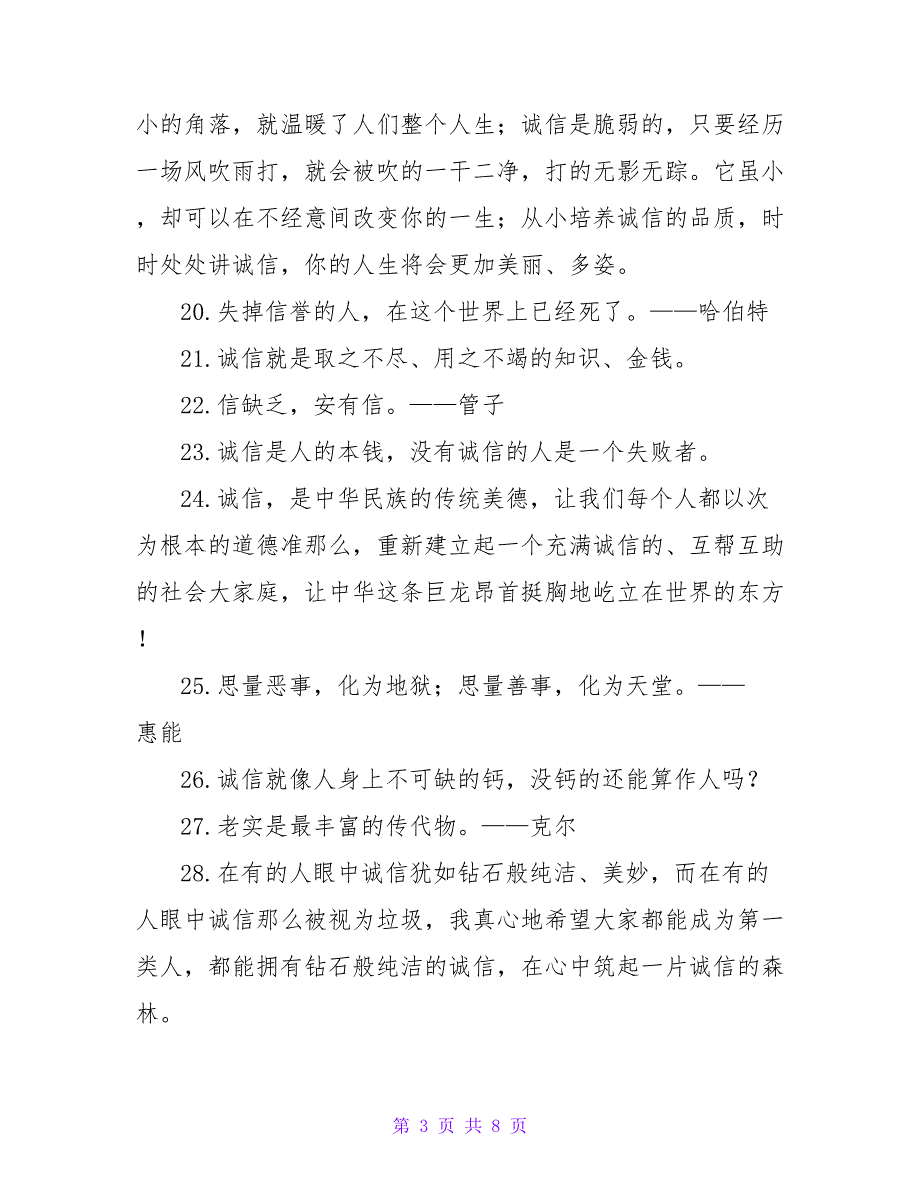 小的角落，就温暖了人们整个人生；诚信是脆弱的，只要经历
一场风吹雨打，就会被吹的一干二净，打的无影无踪。它虽小
，却可以在不经意间改变你的一生；从小培养诚信的品质，时
时处处讲诚信，你的人生将会更加美丽、多姿。
20.失掉信誉的人，在这个世界上已经死了。——哈伯特
21.诚信就是取之不尽、用之不竭的知识、金钱。
22.信缺乏，安有信。——管子
23.诚信是人的本钱，没有诚信的人是一个失败者。
24.诚信，是中华民族的传统美德，让我们每个人都以次
为根本的道德准那么，重新建立起一个充满诚信的、互帮互助
的社会大家庭，让中华这条巨龙昂首挺胸地屹立在世界的东方
！
25.思量恶事，化为地狱；思量善事，化为天堂。——
惠能
26.诚信就像人身上不可缺的钙，没钙的还能算作人吗？
27.老实是最丰富的传代物。——克尔
28.在有的人眼中诚信犹如钻石般纯洁、美妙，而在有的
人眼中诚信那么被视为垃圾，我真心地希望大家都能成为第一
类人，都能拥有钻石般纯洁的诚信，在心中筑起一片诚信的森
林。
第 3 页 共 8 页